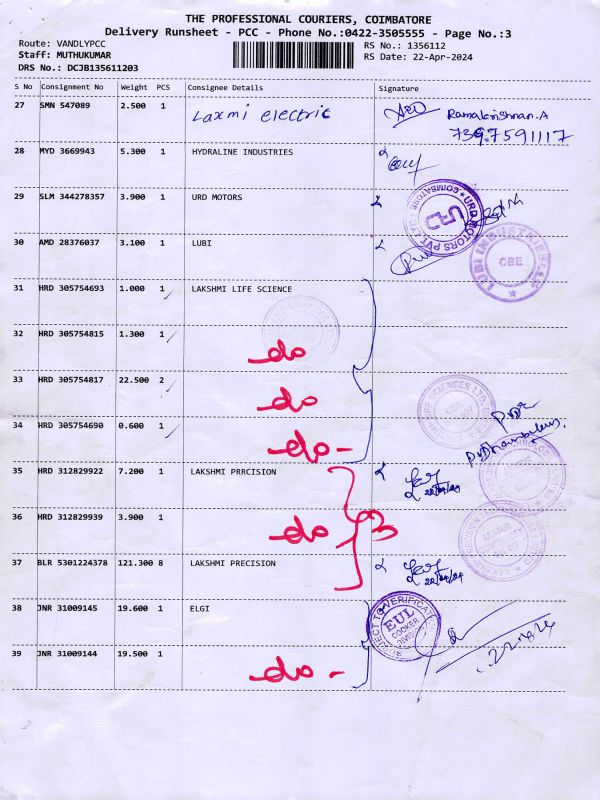 THE PROFESSIONAL COURIERS, COIMBATORE
Delivery Runsheet - PCC - Phone No.:0422-3505555 - Page No.:3
Route: VANDLYPCC
RS No.: 1356112
Staff: MUTHUKUMAR
RS Date: 22-Apr-2024
DRS No.: DCJB135611203
S No Consignment No Weight PCS Consignee Details Signature
27 SMN 547089 2.500 1 Laxmi electric Ramakrishnan.A
7397591117
28 MYD 3669943 5.300 1 HYDRALINE INDUSTRIES
29 SLM 344278357 3.900 1 URD MOTORS
URD MOTORS PVT
COIMBATORE
URD
30 AMD 28376037 3.100 1 LUBI
LUBI INDUSTRIES
CBE
31 HRD 305754693 1.000 1 LAKSHMI LIFE SCIENCE
32 HRD 305754815 1.300 1 do
33 HRD 305754817 22.500 2 do
34 HRD 305754690 0.600 1 do -
35 HRD 312829922 7.200 1 LAKSHMI PRRCISION
22/04/24
36 HRD 312829939 3.900 1 do 3
37 BLR 5301224378 121.300 8 LAKSHMI PRECISION
22/04/24
38 JNR 31009145 19.600 1 ELGI
SUBJECT TO VERIFICATION
EUL
COOKER
DIVISION
39 JNR 31009144 19.500 1 do -